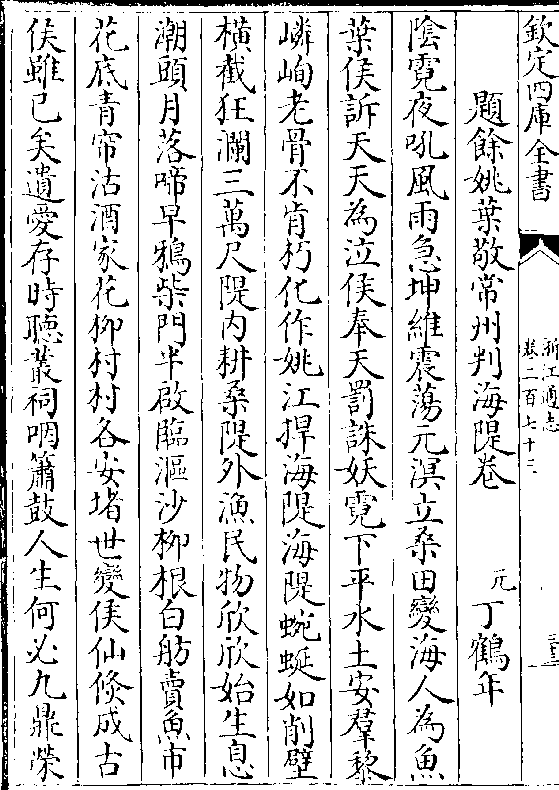 欽定四庫全書
浙江通志
卷二百七十三
題餘姚葉敬常州判海隄卷
元丁鶴年
陰霓夜吼風雨急坤維震蕩元溟立桑田變海人為魚
葉侯訴天天為泣侯奉天罰誅妖霓下平水土安羣黎
嶙峋老骨不肯朽化作姚江捍海隄海隄蜿蜒如削壁
橫截狂瀾三萬尺隄内耕桑隄外漁民物欣欣始生息
潮頭月落啼早鴉柴門半啟臨漚沙柳根白舫賣魚市
花底青帘沽酒家花柳村村各安堵世變侯仙倐成古
侯雖已矣遺愛存時聽叢祠咽簫鼓人生何必九鼎榮